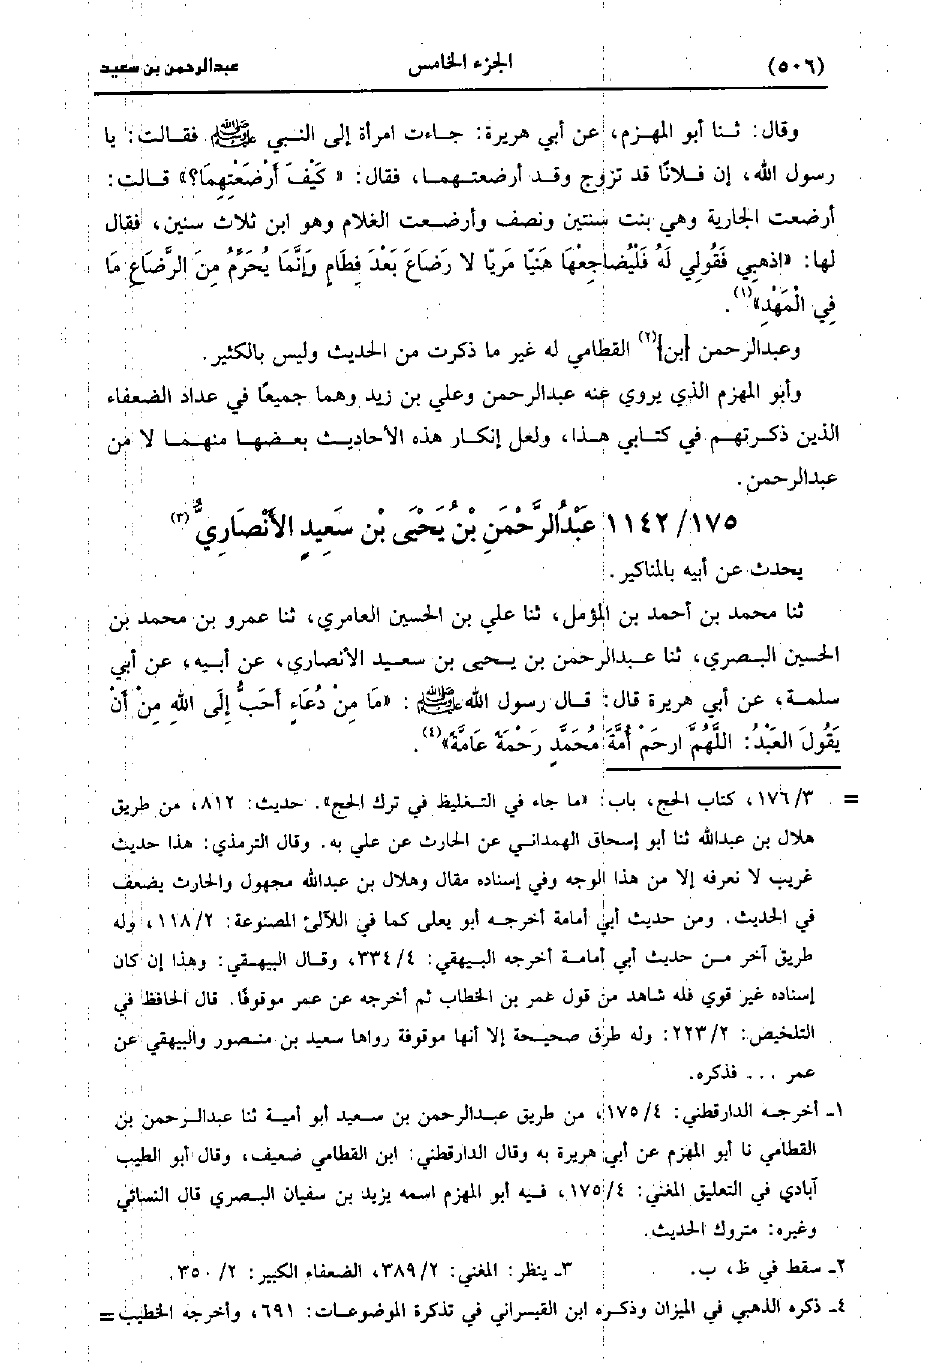 (٥٠٦) الجزء الخامس عبدالرحمن بن سعيد
وقال: ثنا أبو المهزم، عن أبي هريرة: جاءت امرأة إلى النبي ﷺ فقالت: يا
رسول الله، إن فلانًا قد تزوج وقد أرضعتهما، فقال: «كَيْفَ أَرْضَعْتِهِمَا؟» قالت:
أرضعت الجارية وهي بنت سنتين ونصف وأرضعت الغلام وهو ابن ثلاث سنين، فقال
لها: «اذهبي فَقُولِي لَهُ فَلْيُضَاجِعْهَا هَنِيًا مَرِيًا لا رَضَاعَ بَعْدَ فِطَامٍ وَإِنَّمَا يُحَرِّمُ مِنَ الرَّضَاعِ مَا
فِي الْمَهْدِ»(١).
وعبدالرحمن [بن](٢) القطامي له غير ما ذكرت من الحديث وليس بالكثير.
وأبو المهزم الذي يروي عنه عبدالرحمن وعلي بن زيد وهما جميعًا في عداد الضعفاء
الذين ذكرتهم في كتابي هذا، ولعل إنكار هذه الأحاديث بعضها منهما لا من
عبدالرحمن.
١١٤٢/١٧٥ عَبْدُالرَّحْمَنِ بْنُ يَحْيَى بْنِ سَعِيدٍ الأَنْصَارِيُّ(٣)
يحدث عن أبيه بالمناكير.
ثنا محمد بن أحمد بن المؤمل، ثنا علي بن الحسين العامري، ثنا عمرو بن محمد بن
الحسين البصري، ثنا عبدالرحمن بن يحيى بن سعيد الأنصاري، عن أبيه، عن أبي
سلمة، عن أبي هريرة قال: قال رسول الله ﷺ: «مَا مِنْ دُعَاءٍ أَحَبُّ إِلَى اللهِ مِنْ أَنْ
يَقُولَ العَبْدُ: اللَّهُمَّ ارحَمْ أُمَّةَ مُحَمَّدٍ رَحْمَةً عَامَّةً»(٤).
= ١٧٦/٣، كتاب الحج، باب: «ما جاء في التغليظ في ترك الحج». حديث: ٨١٢، من طريق
هلال بن عبدالله ثنا أبو إسحاق الهمداني عن الحارث عن علي به. وقال الترمذي: هذا حديث
غريب لا نعرفه إلا من هذا الوجه وفي إسناده مقال وهلال بن عبدالله مجهول والحارث يضعف
في الحديث. ومن حديث أبي أمامة أخرجه أبو يعلى كما في اللآلئ المصنوعة: ١١٨/٢، وله
طريق آخر من حديث أبي أمامة أخرجه البيهقي: ٣٣٤/٤، وقال البيهقي: وهذا إن كان
إسناده غير قوي فله شاهد من قول عمر بن الخطاب ثم أخرجه عن عمر موقوفًا. قال الحافظ في
التلخيص: ٢٢٣/٢: وله طرق صحيحة إلا أنها موقوفة رواها سعيد بن منصور والبيهقي عن
عمر ... فذكره.
١ـ أخرجه الدارقطني: ١٧٥/٤، من طريق عبدالرحمن بن سعيد أبو أمية ثنا عبدالرحمن بن
القطامي نا أبو المهزم عن أبي هريرة به وقال الدارقطني: ابن القطامي ضعيف، وقال أبو الطيب
آبادي في التعليق المغني: ١٧٥/٤، فيه أبو المهزم اسمه يزيد بن سفيان البصري قال النسائي
وغيره: متروك الحديث.
٢ـ سقط في ظ، ب. ٣ـ ينظر: المغني: ٣٨٩/٢، الضعفاء الكبير: ٣٥٠/٢.
٤ـ ذكره الذهبي في الميزان وذكره ابن القيسراني في تذكرة الموضوعات: ٦٩١، وأخرجه الخطيب =